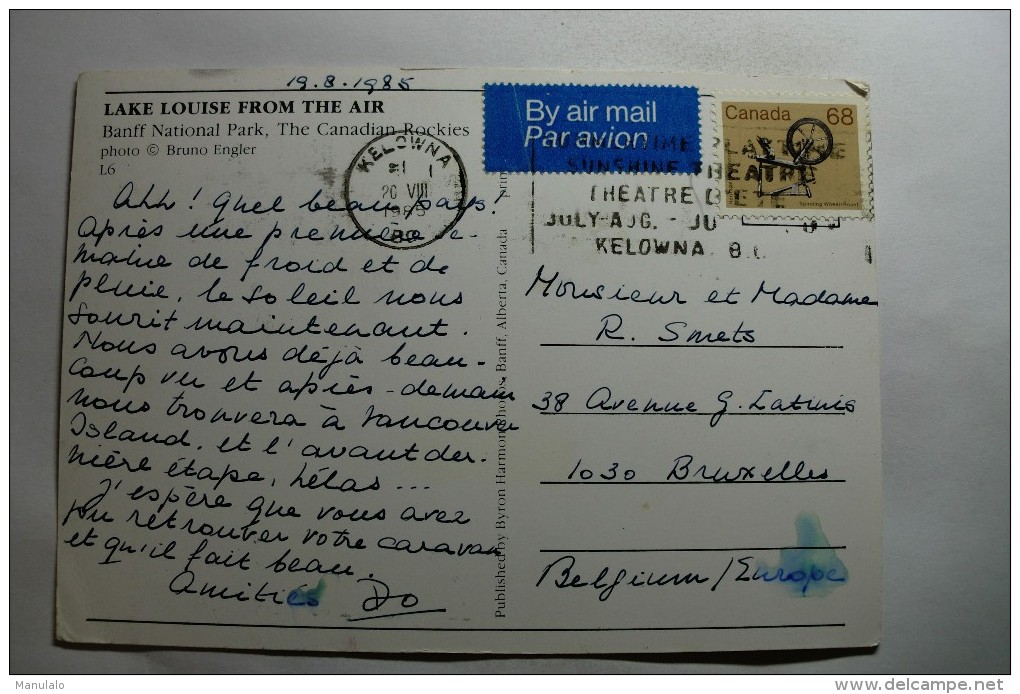 19.8.1985
LAKE LOUISE FROM THE AIR
Banff National Park, The Canadian Rockies
photo © Bruno Engler
L6
Ahh ! Quel beau pays !
Après une première se-
maine de froid et de
pluie, le soleil nous
sourit maintenant.
Nous avons déjà beau-
coup vu et après-demain
nous trouvera à Vancouver
Island, et l'avant der-
nière étape, hélas ...
J'espère que vous avez
pu retrouver votre caravan
et qu'il fait beau.
Amitiés Do
KELOWNA
20 VIII
1985
BC
Published by Byron Harmon Photos, Banff, Alberta, Canada
By air mail
Par avion
Canada 68
Spinning Wheel/Rouet
SUNSHINE THEATRE
THEATRE D'ETE
JULY-AUG. - JU
KELOWNA B.C.
Monsieur et Madame
R. Smets
38 Avenue G. Latinis
1030 Bruxelles
Belgium/Europe
Manulalo
delcampe.net